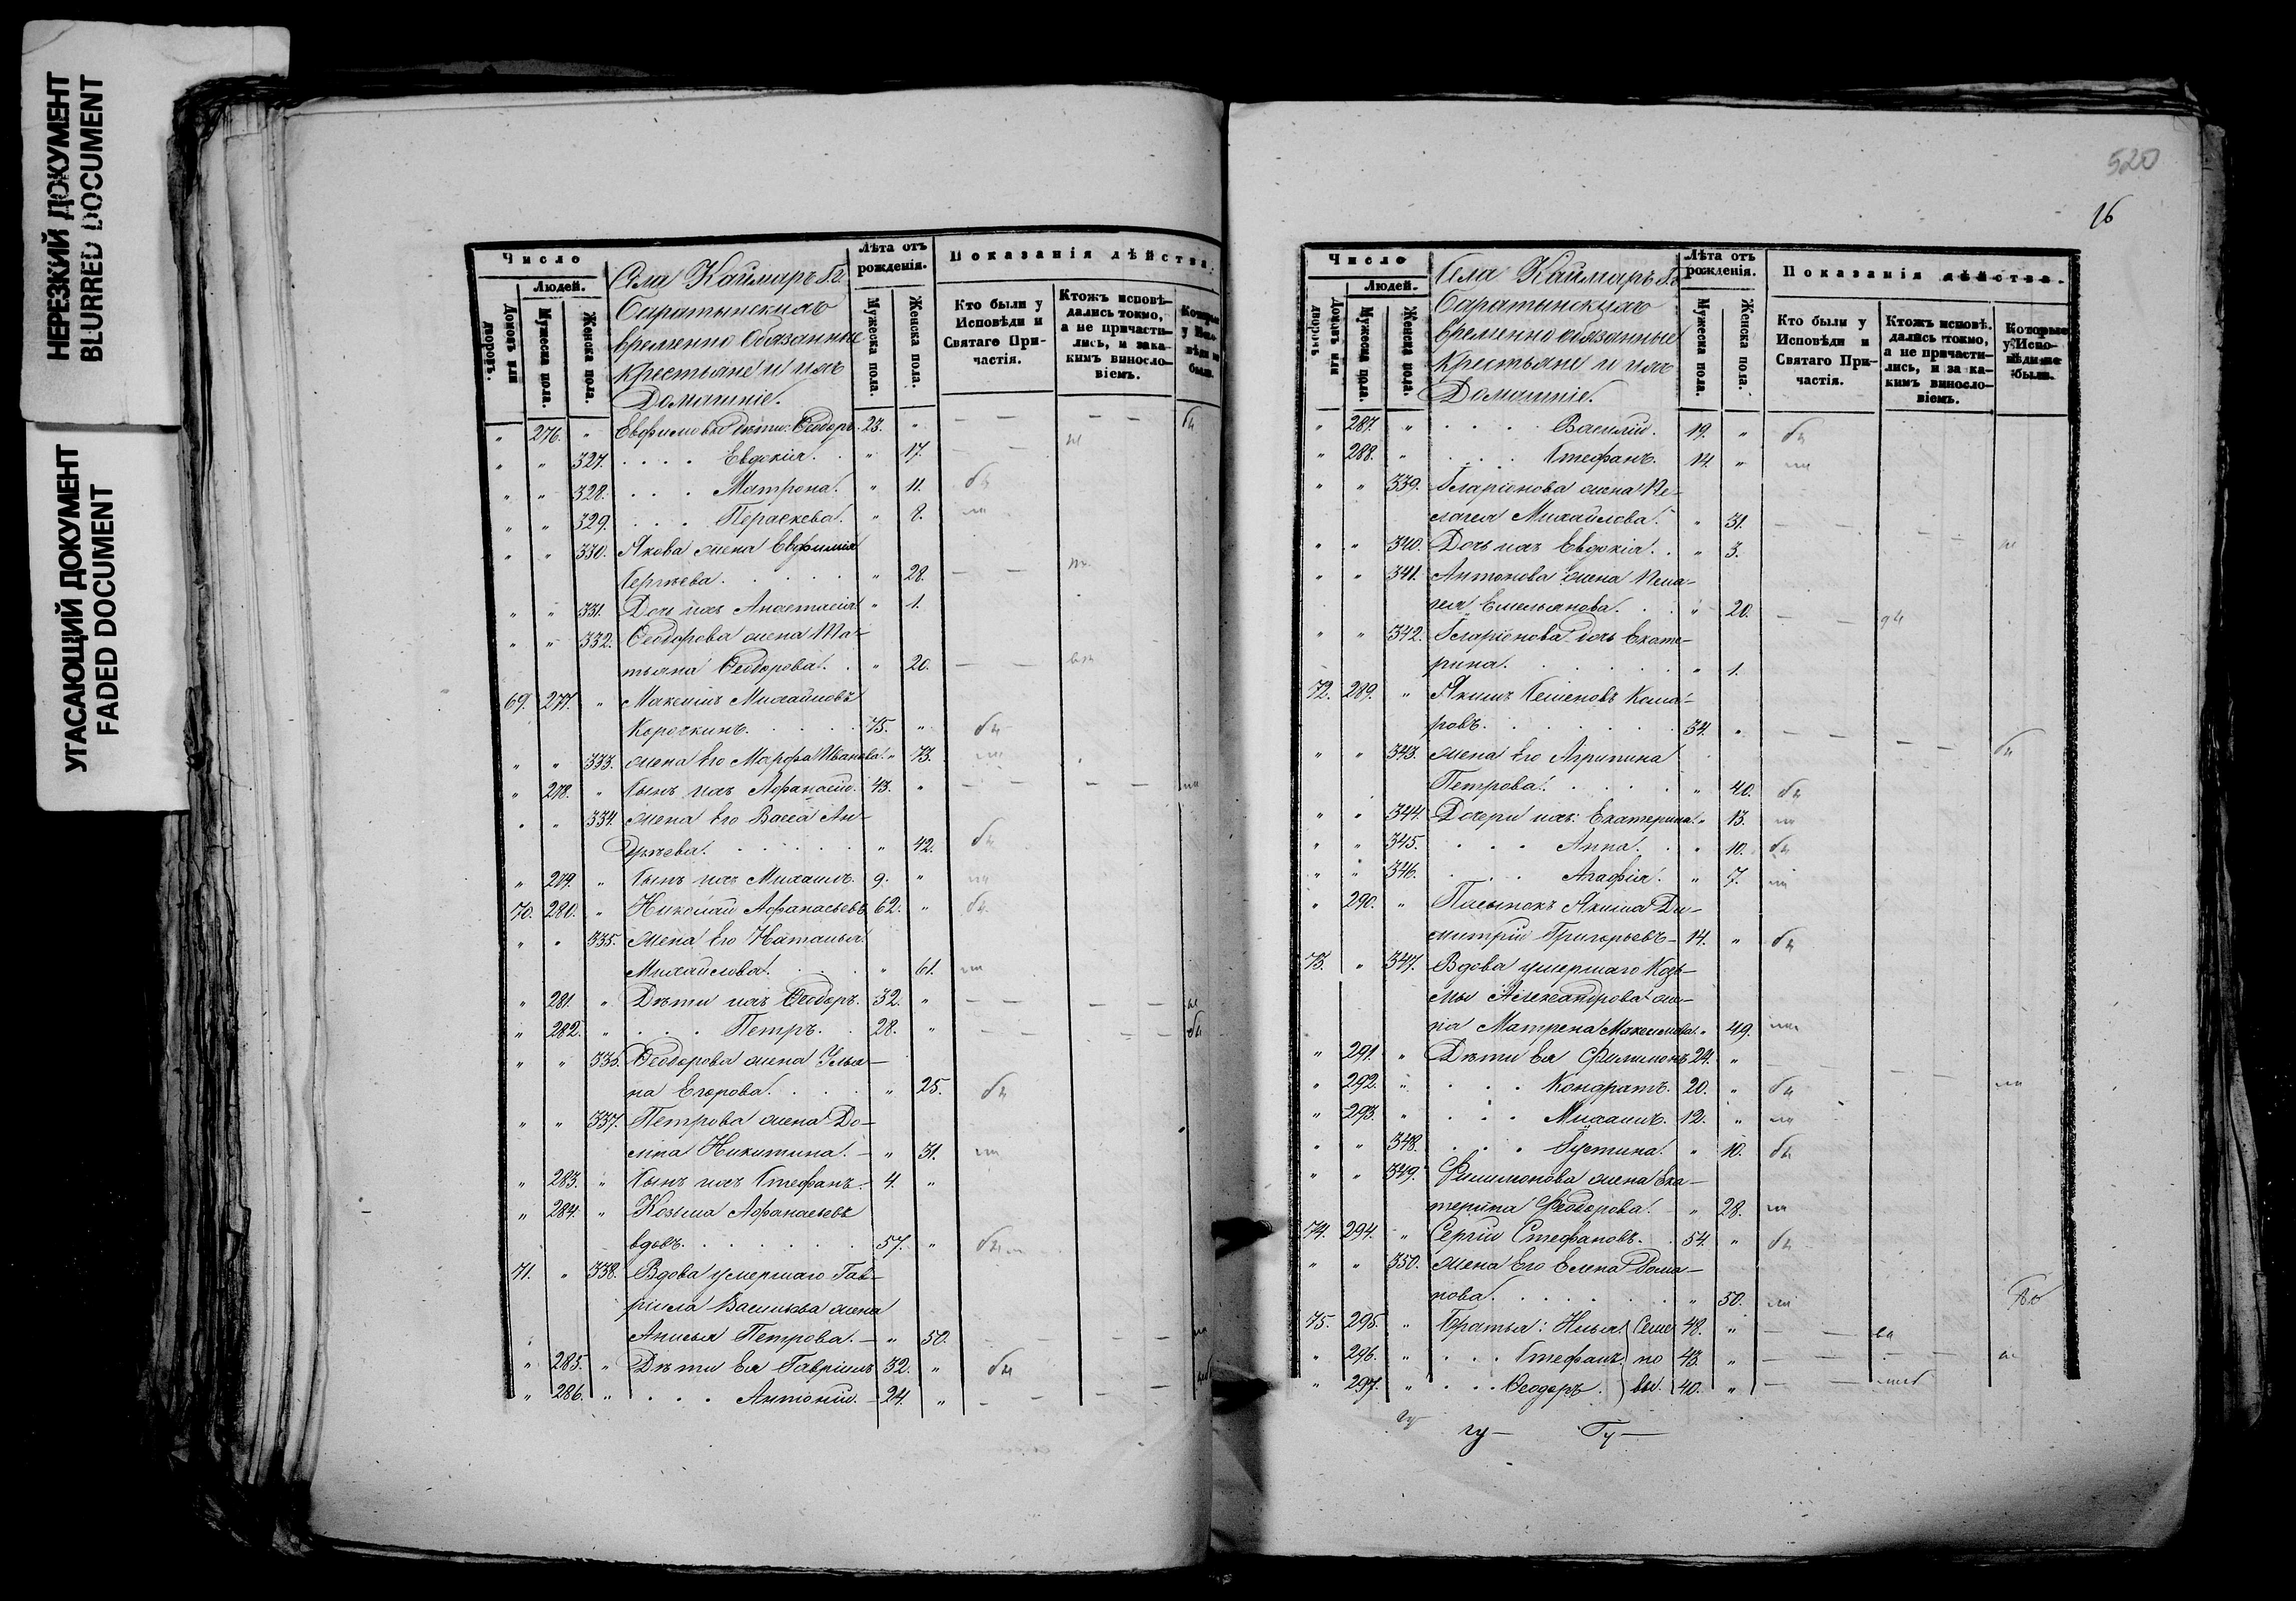 НЕРЕЗКИЙ ДОКУМЕНТ
BLURRED DOCUMENT
УГАСАЮЩИЙ ДОКУМЕНТ
FADED DOCUMENT
Число
Людей.
Домовъ или дворовъ.
Мужеска пола.
Женска пола.
Села Каймаръ Гг.
Саратынскихъ
временно обязанные
крестьяне и ихъ
Домашніе.
Лѣта отъ рожденія.
Мужеска пола.
Женска пола.
Показанія дѣйства.
Кто были у Исповѣди и Святаго Причастія.
Ктожъ исповѣдались токмо, а не причастились, и за какимъ винословіемъ.
" 276. " Евфимовы дѣти: Ѳеодоръ. 23. "
" " 327. Евдокія. " 17.
" " 328. Матрона. " 11.
" " 329. Параскева. " 8.
" " 330. Якова жена Евфимія
Сергѣева. " 28.
" " 331. Дочь ихъ Анастасія. " 1.
" " 332. Ѳеодорова жена Та-
тьяна Ѳеодорова. " 20.
69. 277. " Максимъ Михайловъ
Корочкинъ. 75. "
" " 333. жена его Марфа Иванова. " 73.
" 278. " Сынъ ихъ Афанасій. 43. "
" " 334. жена его Васса Ан-
дреева. " 42.
" 279. " Сынъ ихъ Михаилъ. 9. "
70. 280. " Николай Афанасьевъ 62. "
" " 335. жена его Наталья
Михайлова. " 61.
" 281. " Дѣти ихъ Ѳеодоръ. 32. "
" 282. " Петръ. 28. "
" " 336. Ѳеодорова жена Улья-
на Егорова. " 25.
" " 337. Петрова жена До-
мна Никитина. " 31.
" 283. " Сынъ ихъ Стефанъ. 4. "
" 284. " Козьма Афанасьевъ
вдовъ. 57. "
71. " 338. Вдова умершаго Гав-
ріила Васильева жена
Анисья Петрова. " 50.
" 285. " Дѣти Ея Гавріилъ 32. "
" 286. " Антоній. 24. "
520
16
Число
Людей.
Домовъ или дворовъ
Мужеска пола.
Женска пола.
Села Каймаръ Гг.
Саратынскихъ
временно обязанные
крестьяне и ихъ
Домашніе.
Лѣта отъ рожденія.
Мужеска пола.
Женска пола.
Показанія дѣйства.
Кто были у Исповѣди и Святаго Причастія.
Ктожъ исповѣдались токмо, а не причастились, и за какимъ винословіемъ.
Которые у Исповѣди не были.
" 287. " Василій. 19. "
" 288. " Стефанъ. 14. "
" " 339. Иларіонова жена Пе-
лагея Михайлова. " 31.
" " 340. Дочь ихъ Евдокія. " 3.
" " 341. Антонова жена Пела-
гея Емельянова. " 20.
" " 342. Иларіонова дочь Екате-
рина. " 1.
72. 289. " Якимъ Семеновъ Кома-
ровъ. 34. "
" " 343. жена Его Агрипина
Петрова. " 40.
" " 344. Дочери ихъ: Екатерина. " 13.
" " 345. Анна. " 10.
" " 346. Агафія. " 7.
" 290. " Пасынокъ Якима Ди-
митрій Григорьевъ 14. "
73. " 347. Вдова умершаго Козь-
мы Александрова же-
на Матрена Максимова. " 49.
" 291. " Дѣти Ея Филимонъ 24. "
" 292. " Кондратъ. 20. "
" 293. " Михаилъ. 12. "
" " 348. Іустина. " 10.
" " 349. Филимонова жена Ека-
терина Ѳеодорова. " 28.
74. 294. " Сергій Стефановъ. 54. "
" " 350. жена Его Елена Рома-
нова. " 50.
75. 295. " Братья: Илья Семе 48. "
" 296. " Стефанъ. но 43. "
" 297. " Ѳеодоръ. вы. 40. "